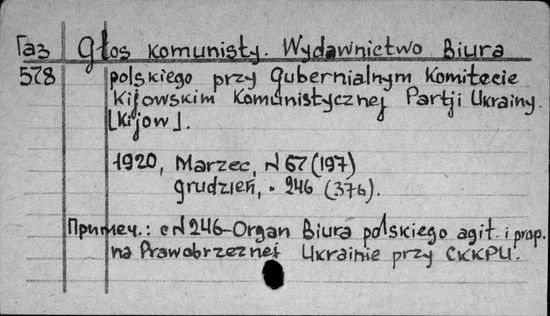 Газ Głos komunisty. Wydawnictwo Biura
578 polskiego przy Gubernialnym Komitecie
Kijowskim Komunistycznej Partji Ukrainy.
[Kijow].
1920, Marzec, N 67 (197)
grudzień, " 246 (376).
Примеч.: с N 246-Organ Biura polskiego agit. i prop.
na Prawobrzeznej Ukrainie przy CKKPU.